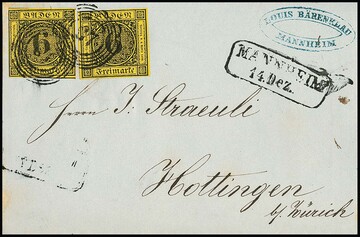 BADEN
6
Freimarke
BADEN
6
Freimarke
LOUIS BÄRENKLAU
MANNHEIM
MANNHEIM
14. Dez.
Herrn J. Straeuli
Hottingen
b/ Zürich